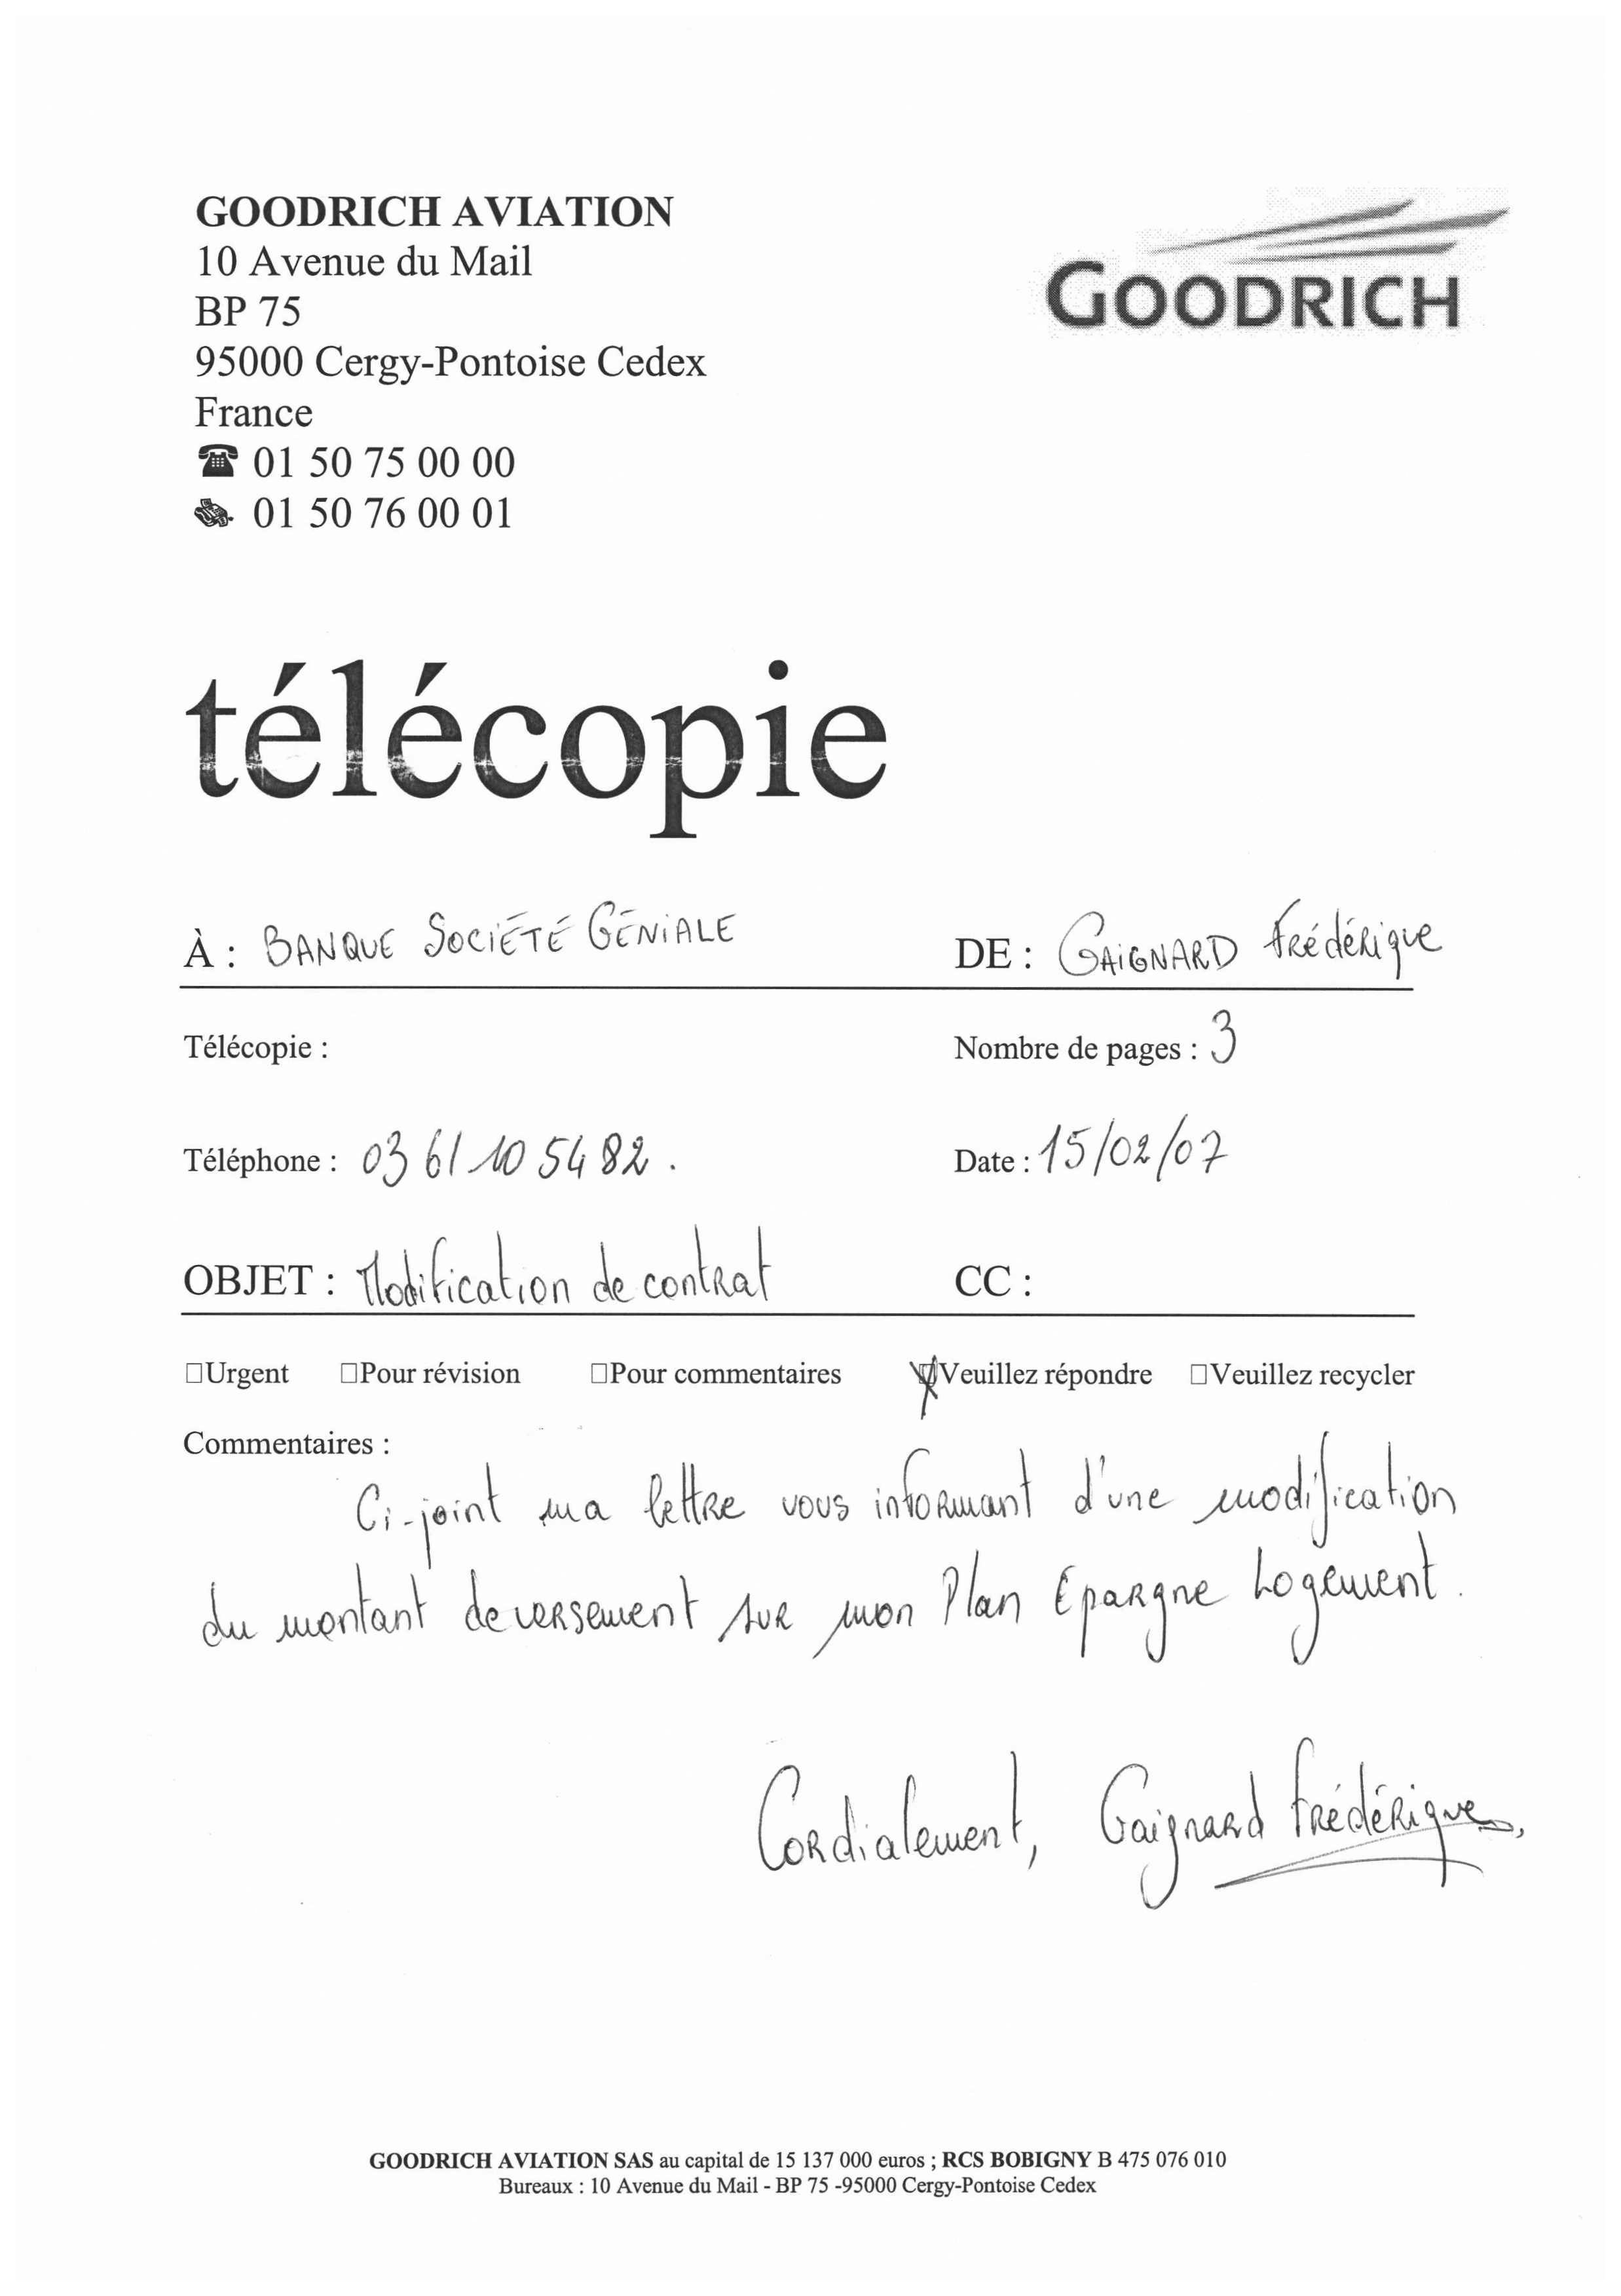 GOODRICH AVIATION
10 Avenue du Mail
BP 75
95000 Cergy-Pontoise Cedex
France
☎ 01 50 75 00 00
01 50 76 00 01
GOODRICH
télécopie
À : BANQUE SOCIÉTÉ GÉNIALE
DE : GAIGNARD Frédérique
Télécopie :
Nombre de pages : 3
Téléphone : 03 61 10 54 82.
Date : 15/02/07
OBJET : Modification de contrat
CC :
☐Urgent ☐Pour révision ☐Pour commentaires ☒Veuillez répondre ☐Veuillez recycler
Commentaires :
Ci-joint ma lettre vous informant d'une modification
du montant de versement sur mon Plan Epargne Logement.
Cordialement, Gaignard Frédérique,
GOODRICH AVIATION SAS au capital de 15 137 000 euros ; RCS BOBIGNY B 475 076 010
Bureaux : 10 Avenue du Mail - BP 75 -95000 Cergy-Pontoise Cedex